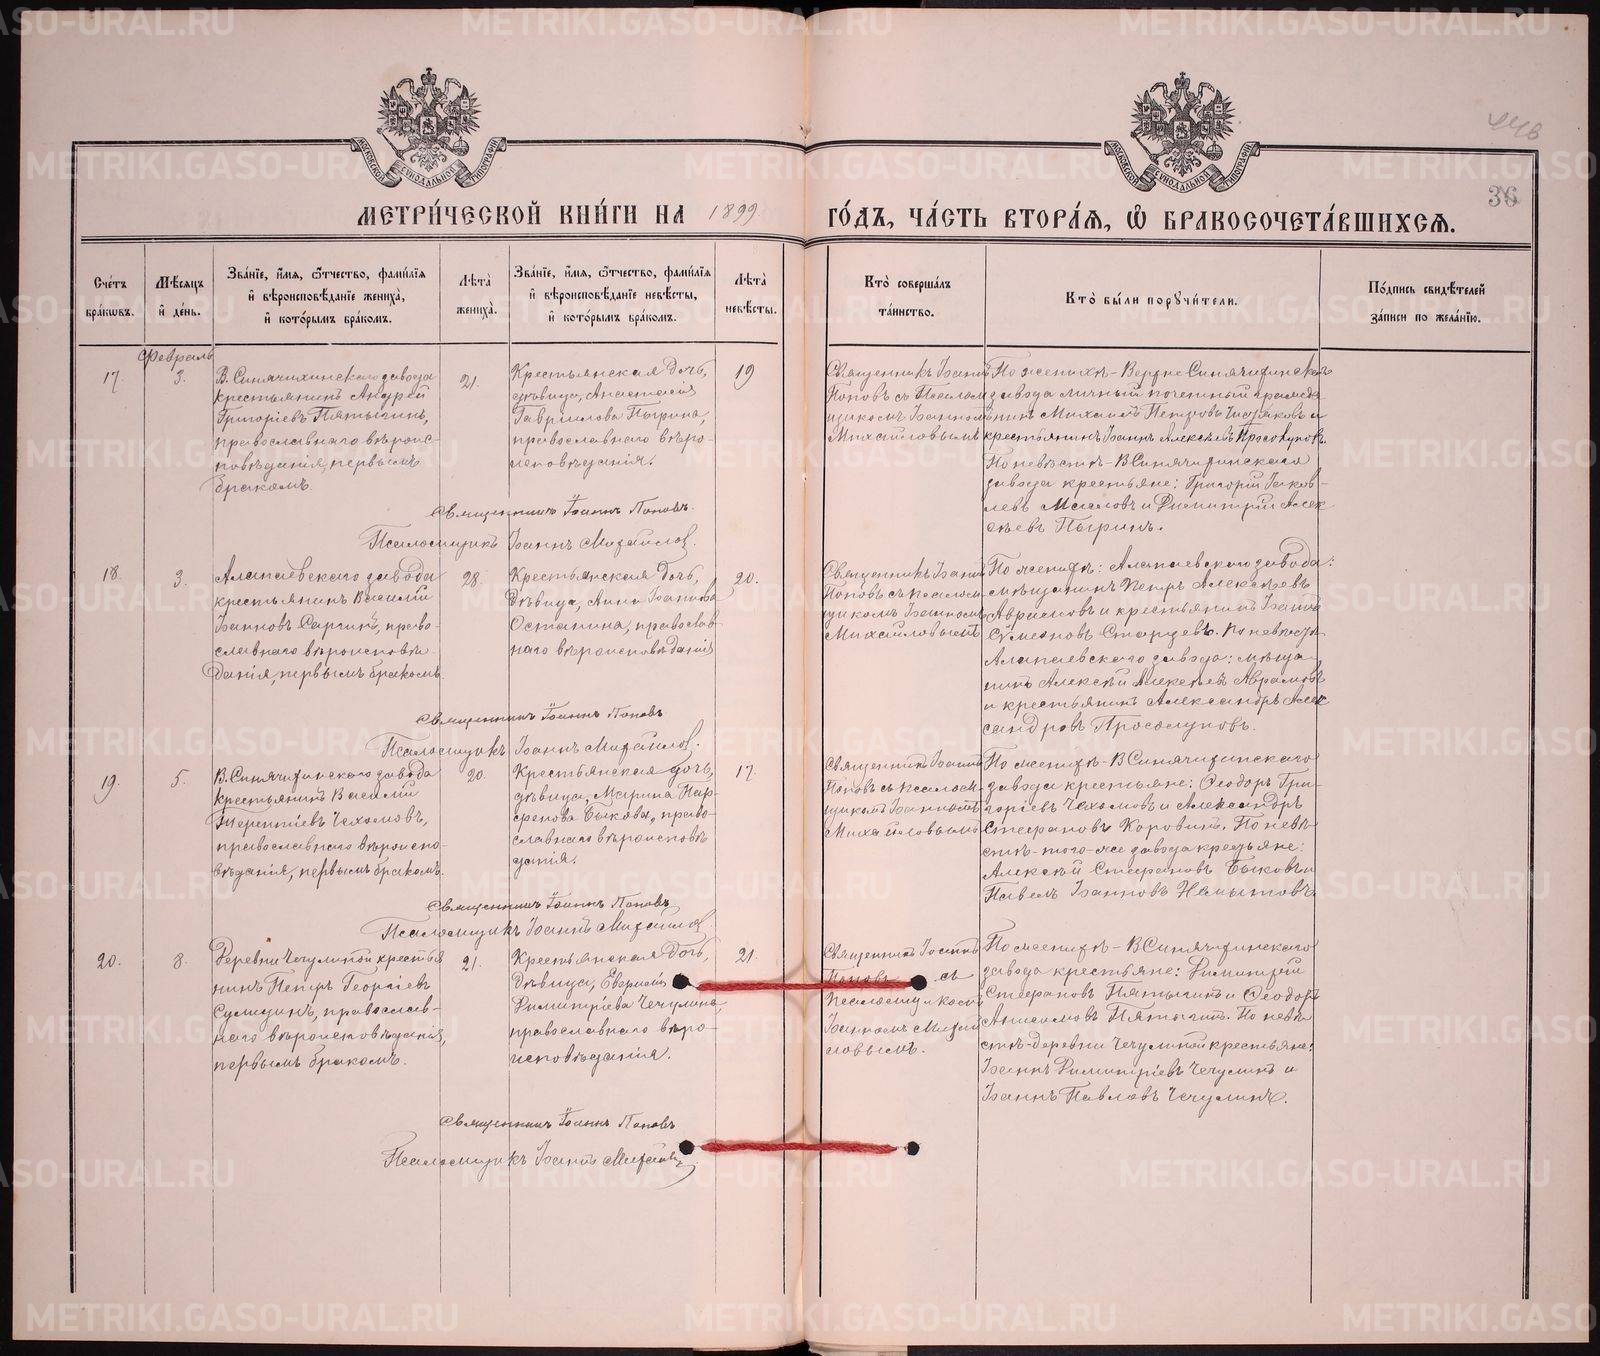 МЕТРИ́ЧЕСКОЙ КНИ́ГИ НА 1899 ГО́ДЪ, ЧА́СТЬ ВТОРА́Я, Ѽ БРАКОСОЧЕТА́ВШИХСЯ.
МОСКОВСКОЙ СѴНОДАЛЬНОЙ ТИПОГРАФІИ
МОСКОВСКОЙ СѴНОДАЛЬНОЙ ТИПОГРАФІИ
36
Счётъ
бра́ковъ.
Мѣ́сяцъ
и҆ де́нь.
Зва́нїе, и҆́мя, ѻ҆́тчество, фами́лїя
и҆ вѣроисповѣ́данїе жениха̀,
и҆ кото́рымъ бра́комъ.
Лѣ́та
жениха̀.
Зва́нїе, и҆́мя, ѻ҆́тчество, фами́лїя
и҆ вѣроисповѣ́данїе невѣ́сты,
и҆ кото́рымъ бра́комъ.
Лѣ́та
невѣ́сты.
Кто̀ соверша́лъ
та́инство.
Кто̀ бы́ли порꙋчи́тели.
По́дпись свидѣ́телей
за́писи по жела́нїю.
Февраль
17.
3.
В. Синячихинскаго завода
крестьянинъ Андрей
Григоріевъ Пятыгинъ,
православнаго вѣроис-
повѣданія, первымъ
бракомъ.
21.
Крестьянская дочь,
дѣвица, Анастасія
Гавриилова Пырина,
православнаго вѣро-
исповѣданія.
19
Священникъ Іоаннъ
Поповъ съ Псалом
щикомъ Іоанномъ
Михайловымъ
По женихѣ – Верхне Синячихинскаго
завода личный почетный гражда
нинъ Михаилъ Петровъ Чистяковъ и
крестьянинъ Іоаннъ Алексѣевъ Просолуповъ.
По невѣстѣ – В Синячихинскаго
завода крестьяне: Григорій Іаков-
левъ и Димитрій Алек
сѣевъ Пыринъ.
Священникъ Іоаннъ Поповъ.
Псаломщикъ Іоаннъ Михайлов.
18.
3.
Алапаевскаго завода
крестьянинъ Василій
Іоанновъ право-
славнаго вѣроисповѣ
данія, первымъ бракомъ
28.
Крестьянская дочь,
дѣвица, Анна Іоаннова
Останина, православ
наго вѣроисповѣданія
20.
Священникъ Іоаннъ
Поповъ съ псалом
щикомъ Іоанномъ
Михайловымъ
По женихѣ: Алапаевскаго завода:
мѣщанинъ Петръ Алексѣевъ
Аврамовъ и крестьянинъ Іоаннъ
Сѵмеоновъ Старцевъ. По невѣстѣ
Алапаевскаго завода: мѣща
нинъ Алексѣй Алексѣевъ Аврамовъ
и крестьянинъ Александръ Алек
сандровъ Просолуповъ.
Священникъ Іоаннъ Поповъ
Псаломщикъ Іоаннъ Михайлов.
19.
5.
В. Синячихинскаго завода
крестьянинъ Василій
Терентіевъ Чехомовъ,
православнаго вѣроиспо-
вѣданія, первымъ бракомъ.
20.
Крестьянская дочь,
дѣвица, Марина Пар-
Быкова, право-
славнаго вѣроисповѣ
данія.
17.
Священникъ Іоаннъ
Поповъ съ псалом
щикомъ Іоанномъ
Михайловымъ
По женихѣ – В Синячихинскаго
завода крестьяне: Ѳеодоръ Гри-
горіевъ Чехомовъ и Александръ
Стефановъ Коровинъ. По невѣ
стѣ – того-же завода крестьяне:
Алексѣй Стефановъ Быковъ и
Павелъ Іоанновъ Немытовъ
Священникъ Іоаннъ Поповъ
Псаломщикъ Іоаннъ Михайлов.
20.
8.
Деревни Чечулиной крестья
нинъ Петръ Георгіевъ
православ-
наго вѣроисповѣданія,
первымъ бракомъ.
21.
Крестьянская дочь,
дѣвица,
Димитріева Чечулина,
православнаго вѣро-
исповѣданія.
21.
Священникъ Іоаннъ
Поповъ съ
Псаломщикомъ
Іоанномъ Михай
ловымъ.
По женихѣ – В Синячихинскаго
завода крестьяне: Димитрій
Стефановъ Пятыгинъ и Ѳеодоръ
Анисимовъ Пятыгинъ. По невѣ
стѣ – деревни Чечулиной крестьяне:
Іоаннъ Димитріевъ Чечулинъ и
Іоаннъ Павловъ Чечулинъ.
Священникъ Іоаннъ Поповъ
Псаломщикъ Іоаннъ Михайловъ
METRIKI.GASO-URAL.RU